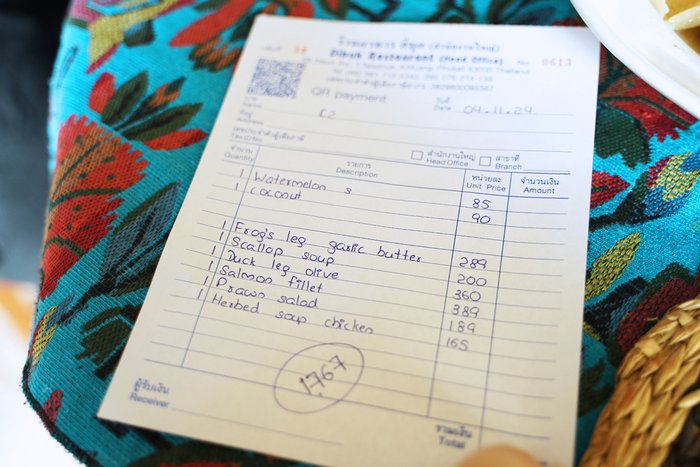 ร้านอาหาร ดีบุก (สำนักงานใหญ่)
Dibuk Restaurant (Head Office) No. 0613
Thailand
QR payment
นาม
Name
วันที่
Date 04.11.24
ที่อยู่ C2
Address
สำนักงานใหญ่ สาขาที่
Head Office Branch
จำนวน รายการ หน่วยละ จำนวนเงิน
Quantity Description Unit Price Amount
1 Watermelon s 85
1 coconut 90
1 Frog's leg garlic butter 289
1 Scallop soup 200
1 Duck leg olive 360
1 Salmon fillet 389
1 Prawn salad 189
1 Herbed soup chicken 165
1,767
ผู้รับเงิน
Receiver
รวมเงิน
Total